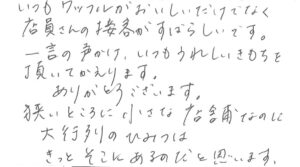 いつもワッフルがおいしいだけでなく
店員さんの接客がすばらしいです。
一言の声がけ、いつもうれしいきもちを
頂いてかえります。
ありがとうございます。
狭いところに小さな店舗なのに
大行列のひみつは
きっとそこにあるのだと思います。